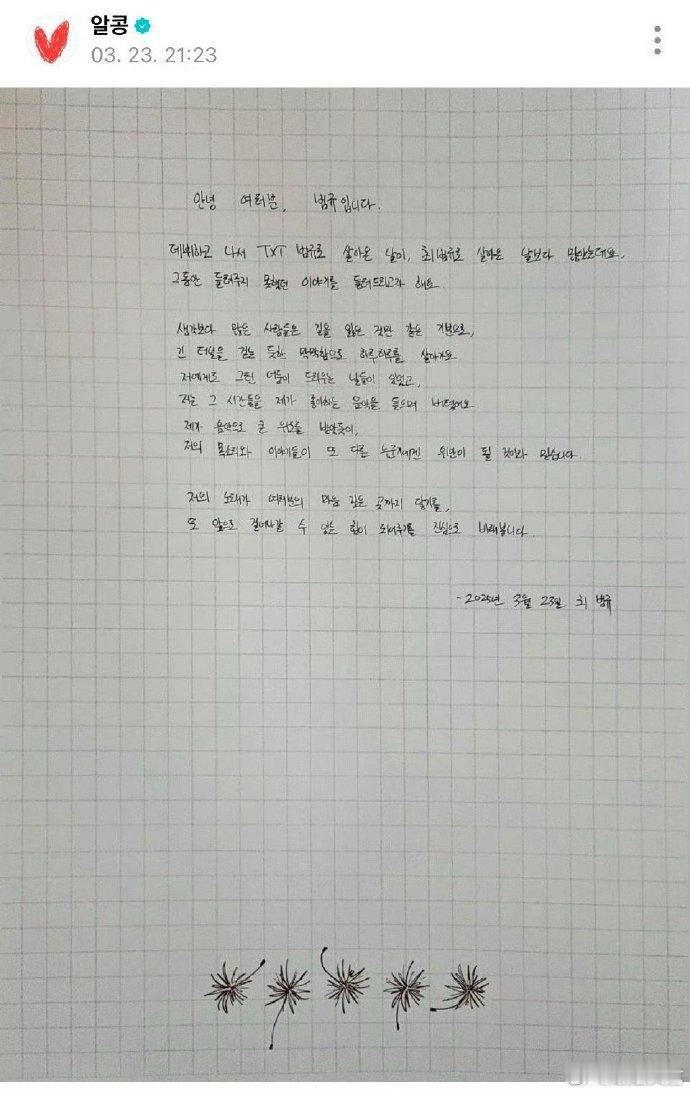 알콩
03. 23. 21:23
안녕 여러분, 범규입니다.
데뷔하고 나서 TXT 범규로 살아온 날이, 최범규로 살아온 날보다 많았는데요.
그동안 들려주지 못했던 이야기를 들려드리고자 해요.
생각보다 많은 사람들은 길을 잃은 것만 같은 기분으로,
긴 터널을 걷는 듯한 막막함으로 하루하루를 살아가요.
저에게도 그런 어둠이 드리우는 날들이 있었고,
저는 그 시간들을 제가 좋아하는 음악을 들으며 버텼어요.
제가 음악으로 큰 위로를 받았듯이,
저의 목소리와 이야기들이 또 다른 누군가에겐 위안이 될 것이라 믿습니다.
저의 노래가 여러분의 마음 깊은 곳까지 닿기를,
또 앞으로 걸어나갈 수 있는 힘이 되어주기를 진심으로 바래봅니다.
- 2025년 3월 23일 최 범규